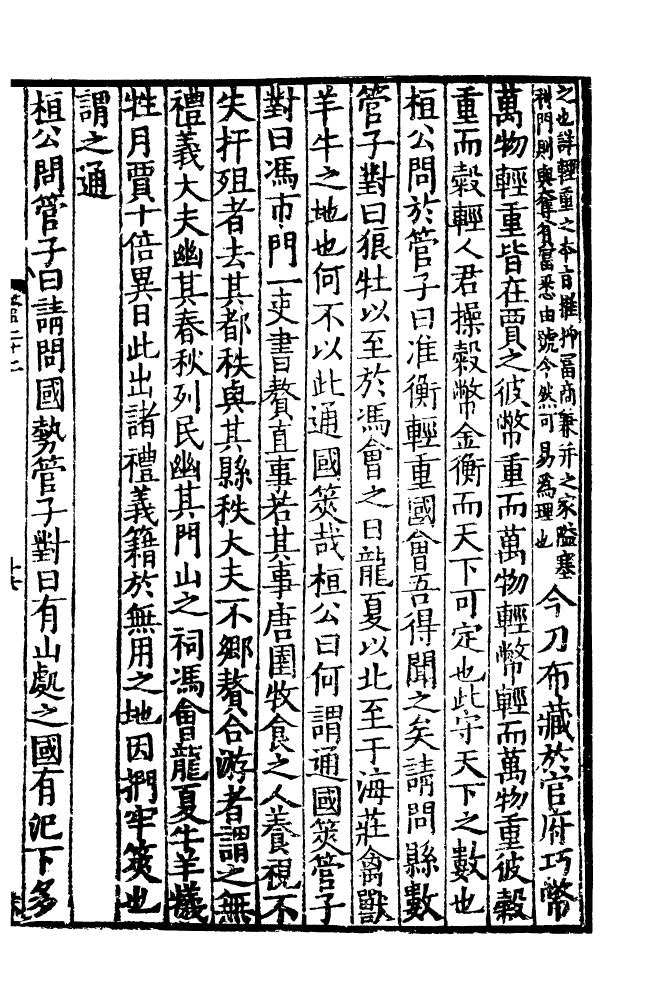 之也詳輕重之本言摧抑富商兼并之家隘塞
利門則與奪貧富悉由號令然可易為理也
今刀布藏於官府巧幣
萬物輕重皆在賈之彼幣重而萬物輕幣輕而萬物重彼穀
重而穀輕人君操穀幣金衡而天下可定也此守天下之數也
桓公問於管子曰准衡輕重國會吾得聞之矣請問縣數
管子對曰狼牡以至於馮會之日龍夏以北至于海莊禽獸
羊牛之地也何不以此通國筴哉桓公曰何謂通國筴管子
對曰馮市門一吏書贅直事若其事唐圉牧食之人養視不
失扞殂者去其都秩與其縣秩大夫不鄉贅合游者謂之無
禮義大夫幽其春秋列民幽其門山之祠馮會龍夏牛羊犧
牲月賈十倍異日此出諸禮義籍於無用之地因捫牢筴也
謂之通
桓公問管子曰請問國勢管子對曰有山處之國有氾下多